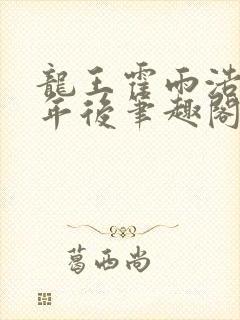 龍王霍雨浩
年後筆趣閣
葛西尚